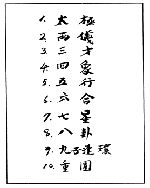 1. 太極
2. 兩儀
3. 三才
4. 四象
5. 五行
6. 六合
7. 七星
8. 八卦
9. 九子連環
10. 重圓